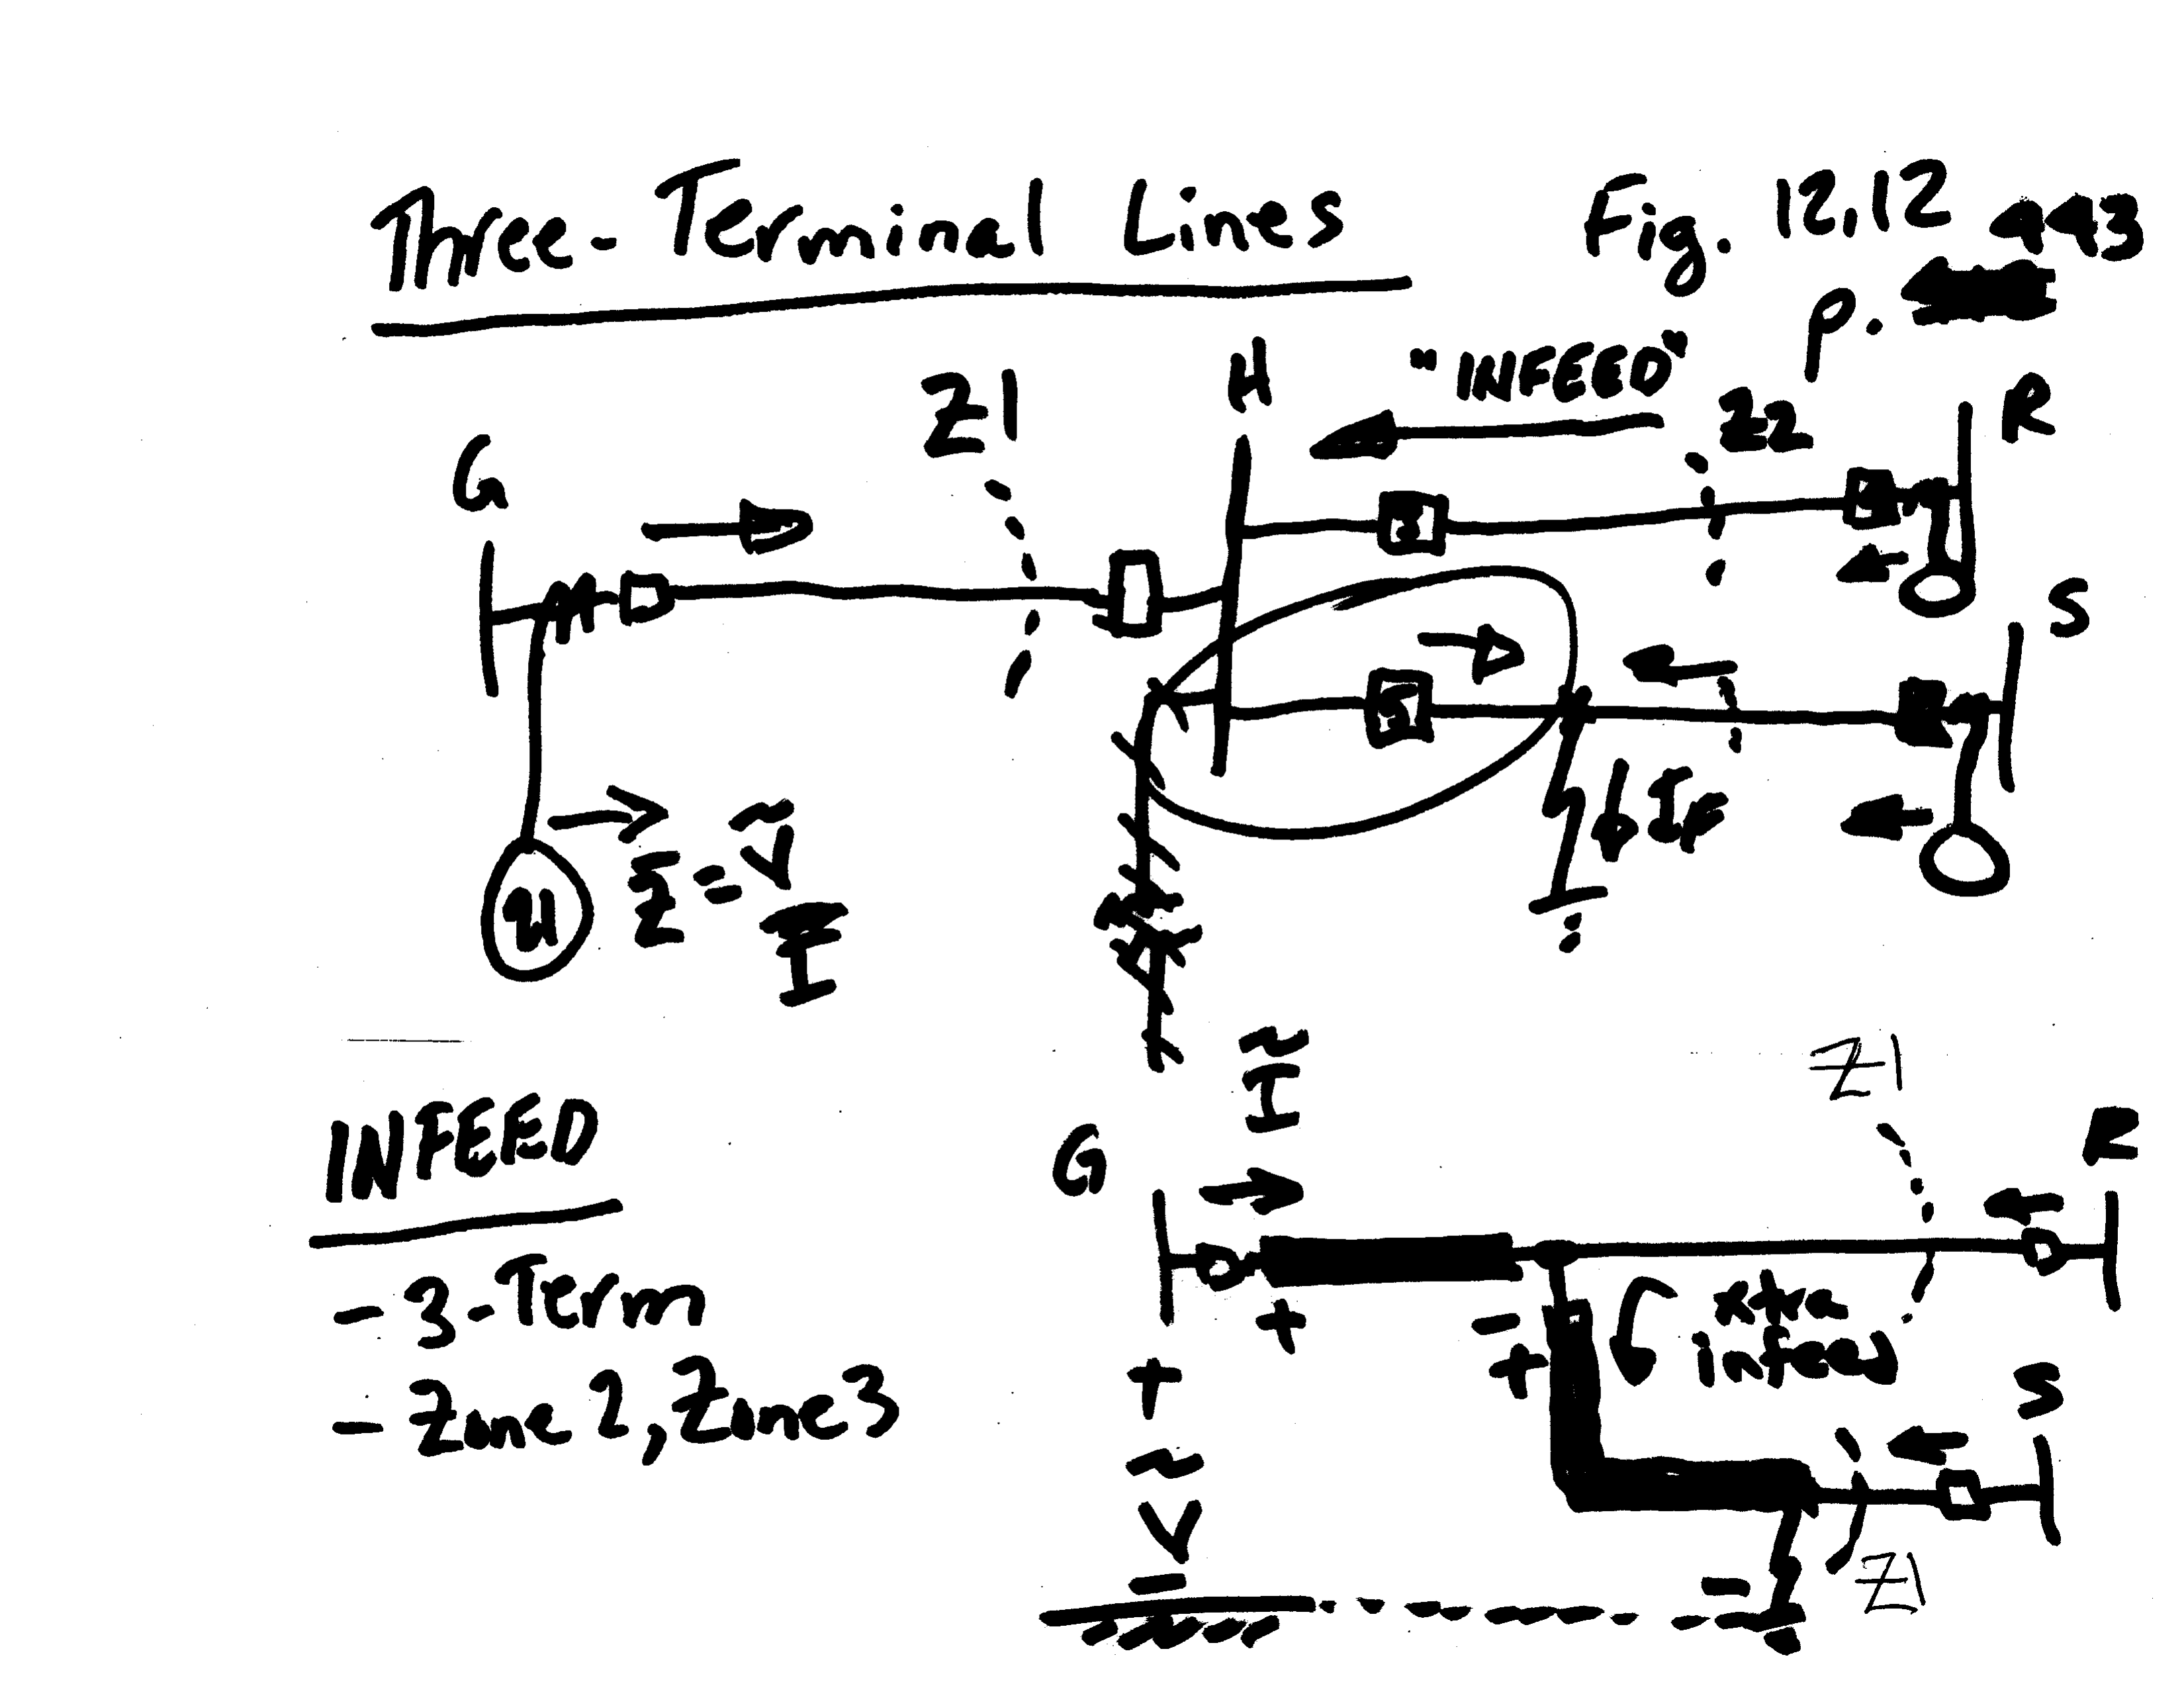 Three-Terminal Lines
Fig. 12.12
p. 443
Z1
H
"INFEED"
Z2
R
G
3
S
5
IF
21
Z = Ṽ
I
INFEED
- 3-Term
- Zone 2, Zone 3
Ĩ
Z1
G
R
+
-
+
extra
infeed
S
+
Ṽ
-
-
Z1